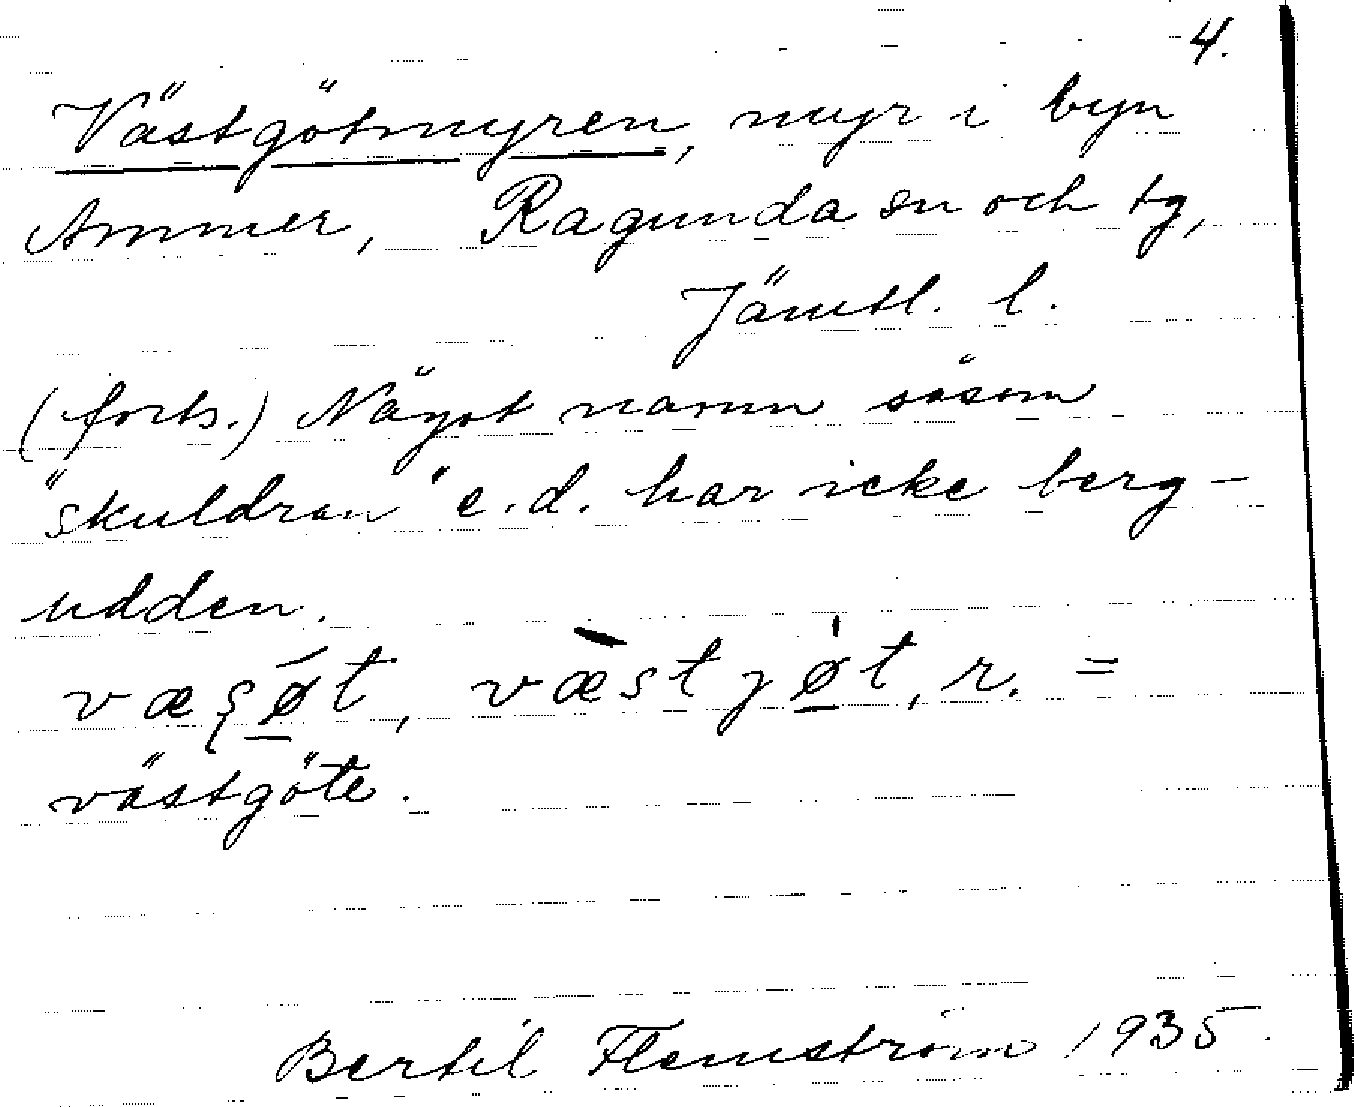 4.
Västgötmyren, myr i byn
Ammer, Ragunda sn och tg,
Jämtl. l.
(forts.) Något namn såsom
"skuldran" e.d. har icke berg-
udden.
västgöte.
Bertil Flemström 1935.